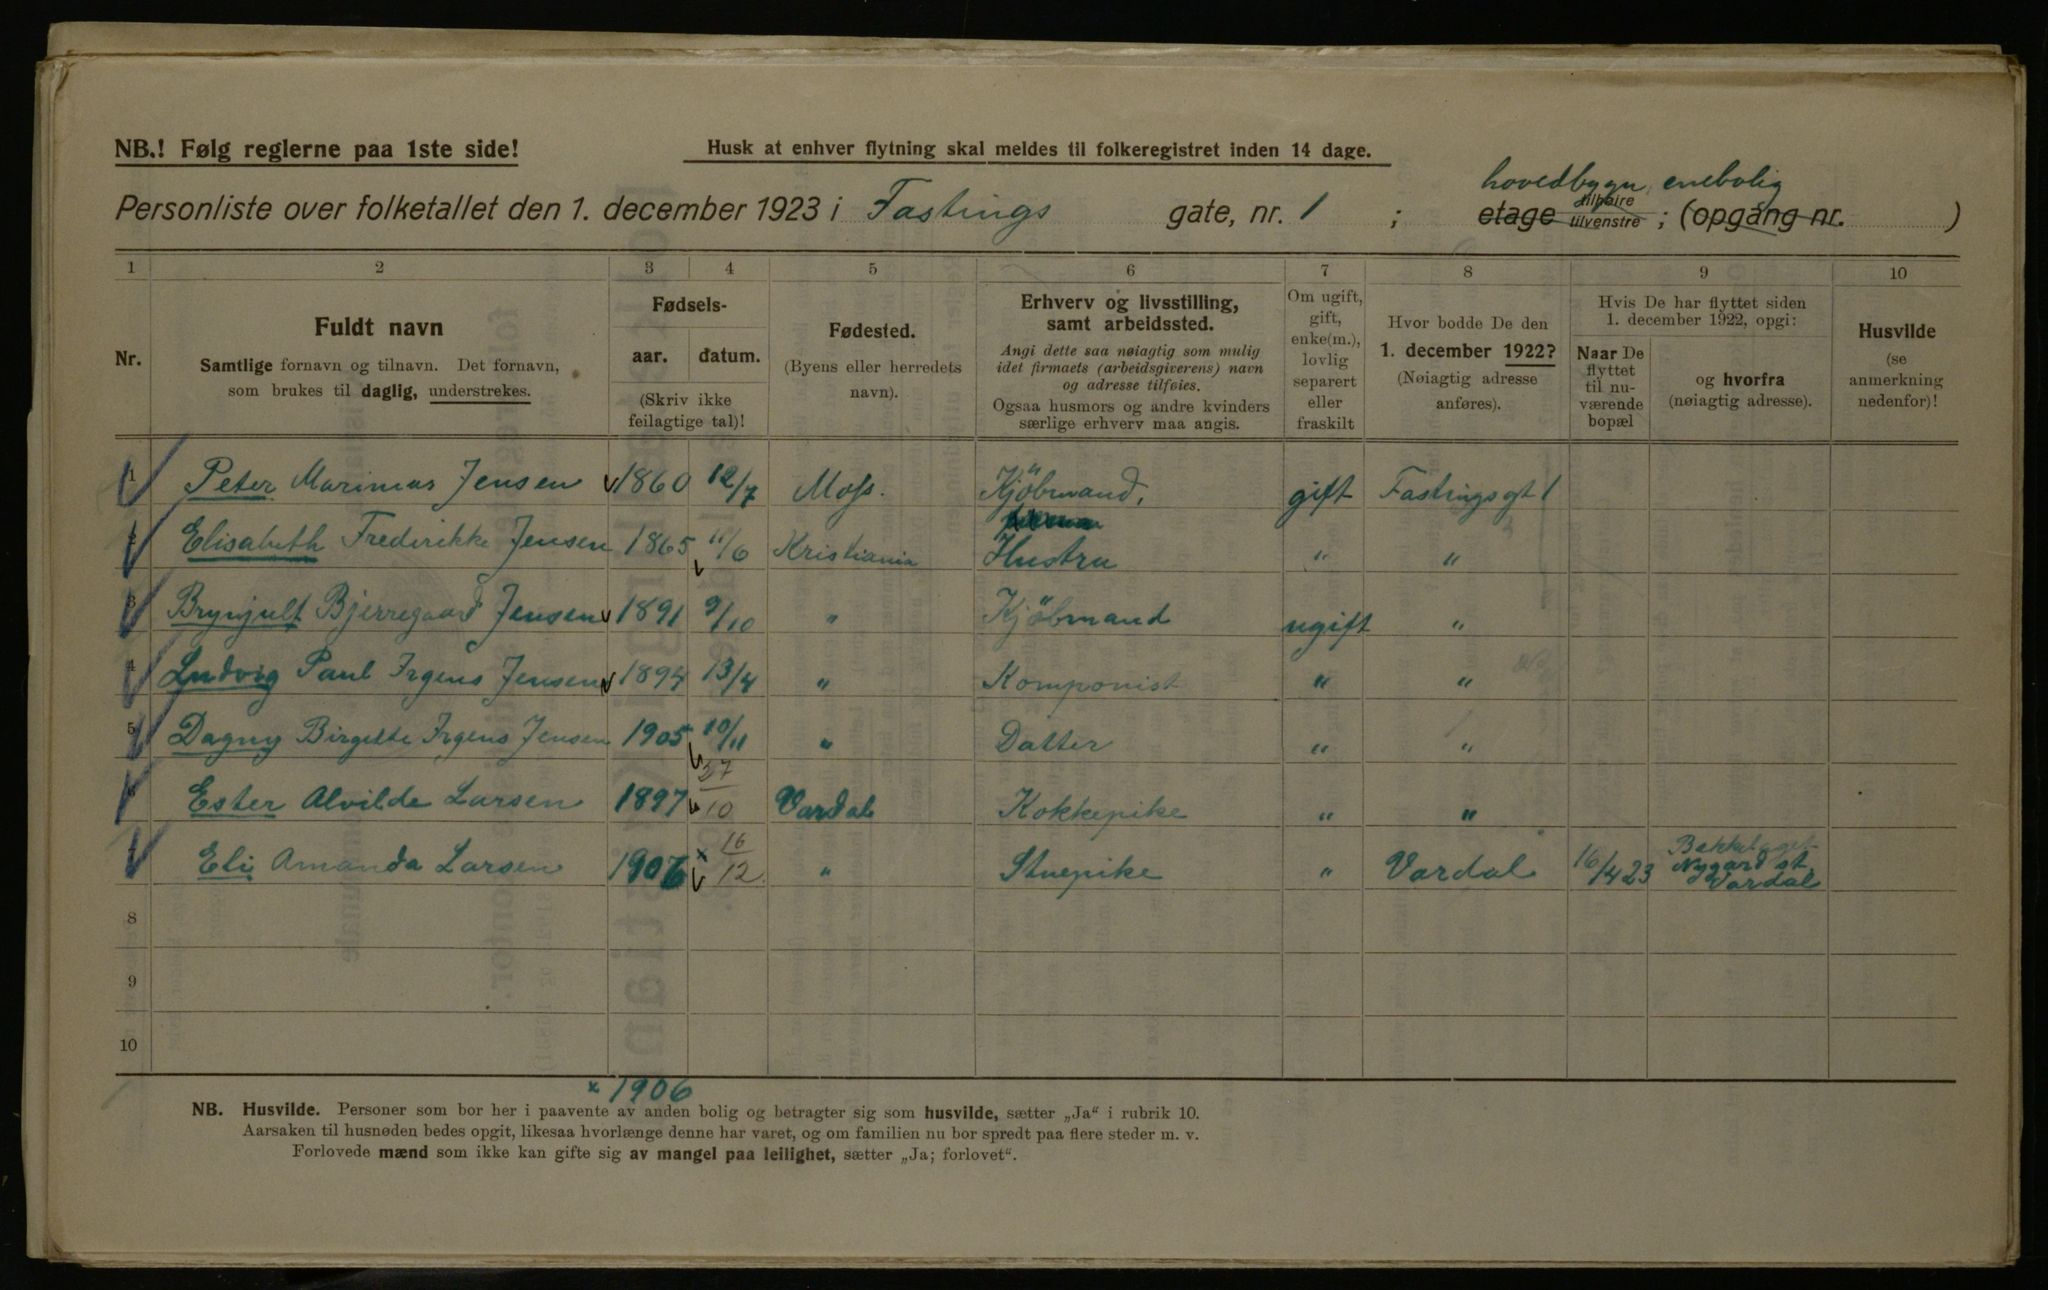 NB.! Følg reglerne paa 1ste side!
Husk at enhver flytning skal meldes til folkeregistret inden 14 dage.
hovedbygn, enebolig
Personliste over folketallet den 1. december 1923 i Fastings gate, nr. 1 ; etage tilhøire tilvenstre ; (opgang nr. )
1 2 3 4 5 6 7 8 9 10
Nr.
Fuldt navn
Samtlige fornavn og tilnavn. Det fornavn,
som brukes til daglig, understrekes.
Fødsels-
aar. datum.
(Skriv ikke
feilagtige tal)!
Fødested.
(Byens eller herredets
navn).
Erhverv og livsstilling,
samt arbeidssted.
Angi dette saa nøiagtig som mulig
idet firmaets (arbeidsgiverens) navn
og adresse tilføies.
Ogsaa husmors og andre kvinders
særlige erhverv maa angis.
Om ugift,
gift,
enke(m.),
lovlig
separert
eller
fraskilt
Hvor bodde De den
1. december 1922?
(Nøiagtig adresse
anføres).
Hvis De har flyttet siden
1. december 1922, opgi:
Naar De
flyttet
til nu-
værende
bopæl
og hvorfra
(nøiagtig adresse).
Husvilde
(se
anmerkning
nedenfor)!
1 Peter Marinius Jensen 1860 12/7 Moss. Kjöbmand, gift Fastingsgt 1
2 Elisabeth Frederikke Jensen 1865 11/6 Kristiania Hustru " "
3 Brynjulf Bjerregaard Jensen 1891 9/10 " Kjöbmand ugift "
4 Ludvig Paul Irgens Jensen 1894 13/4 " Komponist " "
5 Dagny Birgitte Irgens Jensen 1905 10/11 " Datter " "
6 Ester Alvilde Larsen 1897 27/10 Vardal Kokkepike " "
7 Eli Amanda Larsen 1906 x 16/12. " Stuepike " Vardal 16/4 23 Nygard st. Vardal
8
9
10
x 1906
NB. Husvilde. Personer som bor her i paavente av anden bolig og betragter sig som husvilde, sætter „Ja“ i rubrik 10.
Aarsaken til husnøden bedes opgit, likesaa hvorlænge denne har varet, og om familien nu bor spredt paa flere steder m. v.
Forlovede mænd som ikke kan gifte sig av mangel paa leilighet, sætter „Ja; forlovet“.